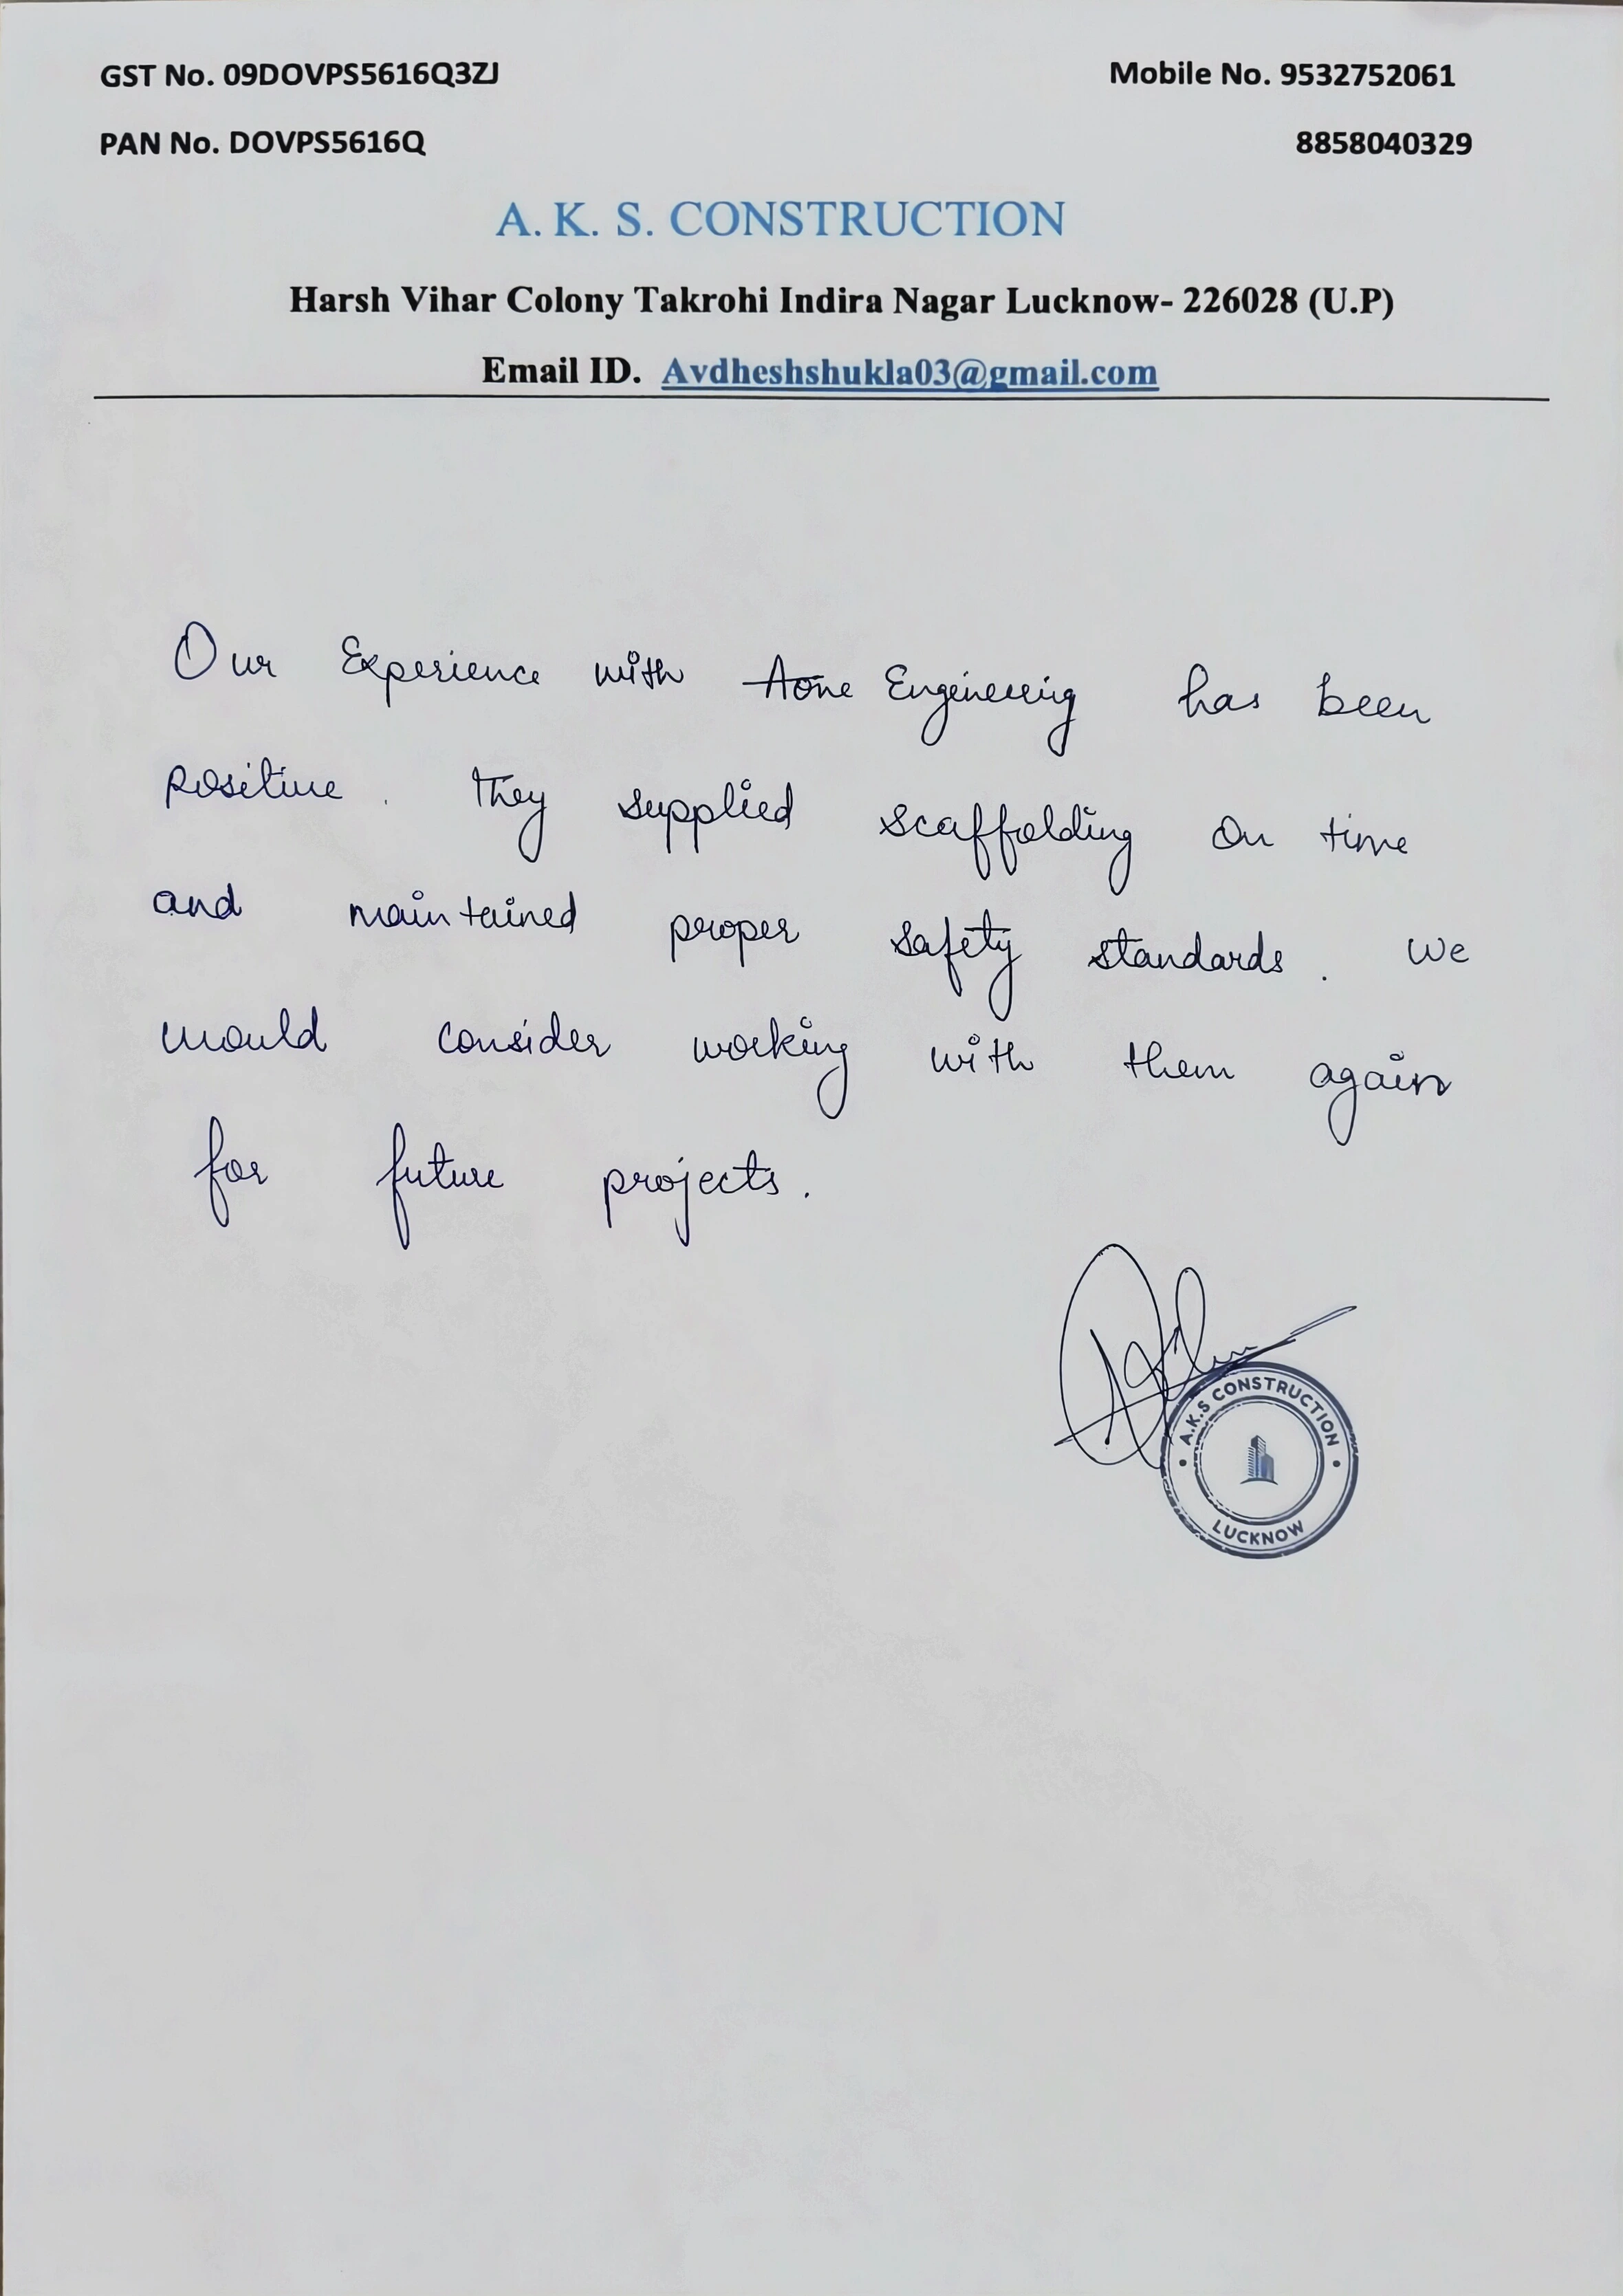 GST No. 09DOVPS5616Q3ZJ
Mobile No. 9532752061
PAN No. DOVPS5616Q
8858040329
A. K. S. CONSTRUCTION
Harsh Vihar Colony Takrohi Indira Nagar Lucknow- 226028 (U.P)
Email ID. Avdheshshukla03@gmail.com
Our Experience with Aone Engineering has been
positive. They supplied scaffolding on time
and maintained proper safety standards. We
would consider working with them again
for future projects.
A.K.S CONSTRUCTION
LUCKNOW